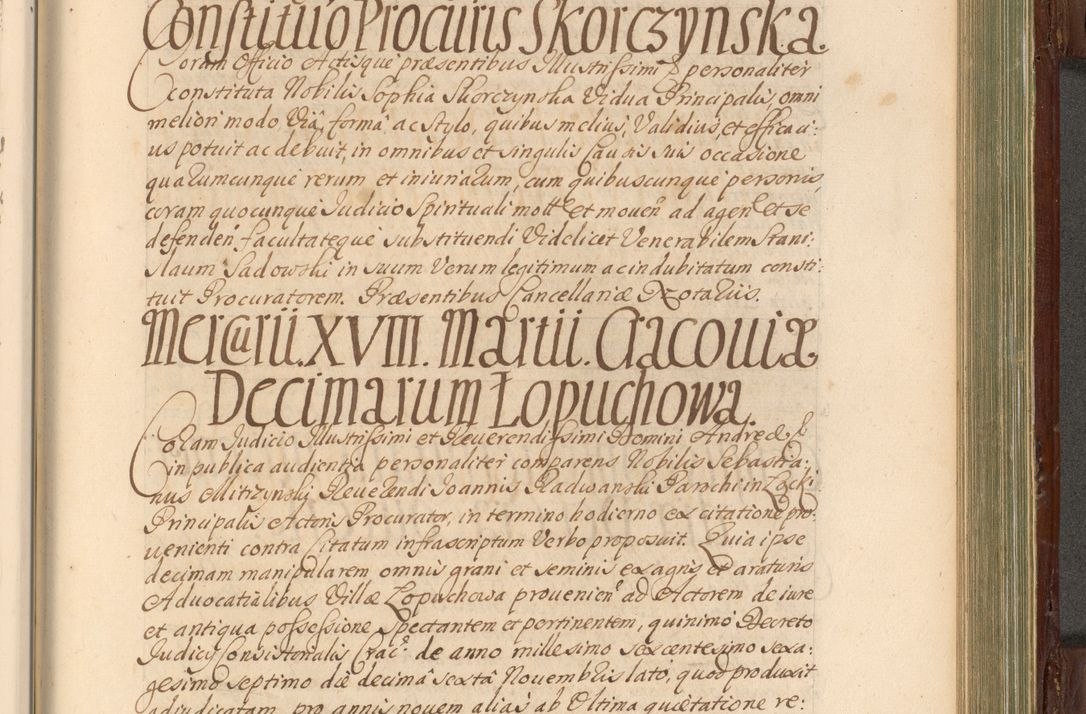 Constituo Procuris Skorczynska.
Coram Officio Actisque præsentibus Illustrissimi &c personaliter
constituta Nobilis Sophia Skorczynska Vidua Principalis, omni
meliori modo Viâ, formâ ac stylo, quibus melius, Validius, et efficaci:
us potuit ac debuit, in omnibus et singulis Causis suis occasione
quarumcunque rerum et iniuriarum, cum quibuscunque personis,
coram quocunque Judicio Spirituali mott et mouen ad agen et se
defenden facultateque substituendi Videlicet Venerabilem Stani:
slaum Sadowski in suum Verum legitimum ac indubitatum consti:
tuit Procuratorem. Præsentibus Cancellariæ Notariis.
Mercurii. XVIII. Martii. Cracouiæ.
Decimarum Łopuchowa.
Coram Judicio Illustrissimi et Reuerendissimi Domini Andreæ &c
in publica audientia personaliter comparens Nobilis Sebastia:
nus Mitrzynski Reuerendi Joannis Radwanski Parochi in Łącki
Principalis Actoris Procurator, in termino hodierno ex citatione pro:
uenienti contra Citatum infrascriptum Verbo proposuit. Quia ipse
decimam manipularem omnis grani et seminis ex agris et araturis
Aduocatialibus Villæ Łopuchowa prouenien ad Actorem de iure
et antiqua possessione Spectantem et pertinentem, quinimo Decreto
Judicij Consistorialis Crac: de anno millesimo sexcentesimo sexa:
gesimo septimo die decima sexta Nouembris lato, quod produxit
adiudicatam, pro annis nouem alias ab Ultima quietatione re: